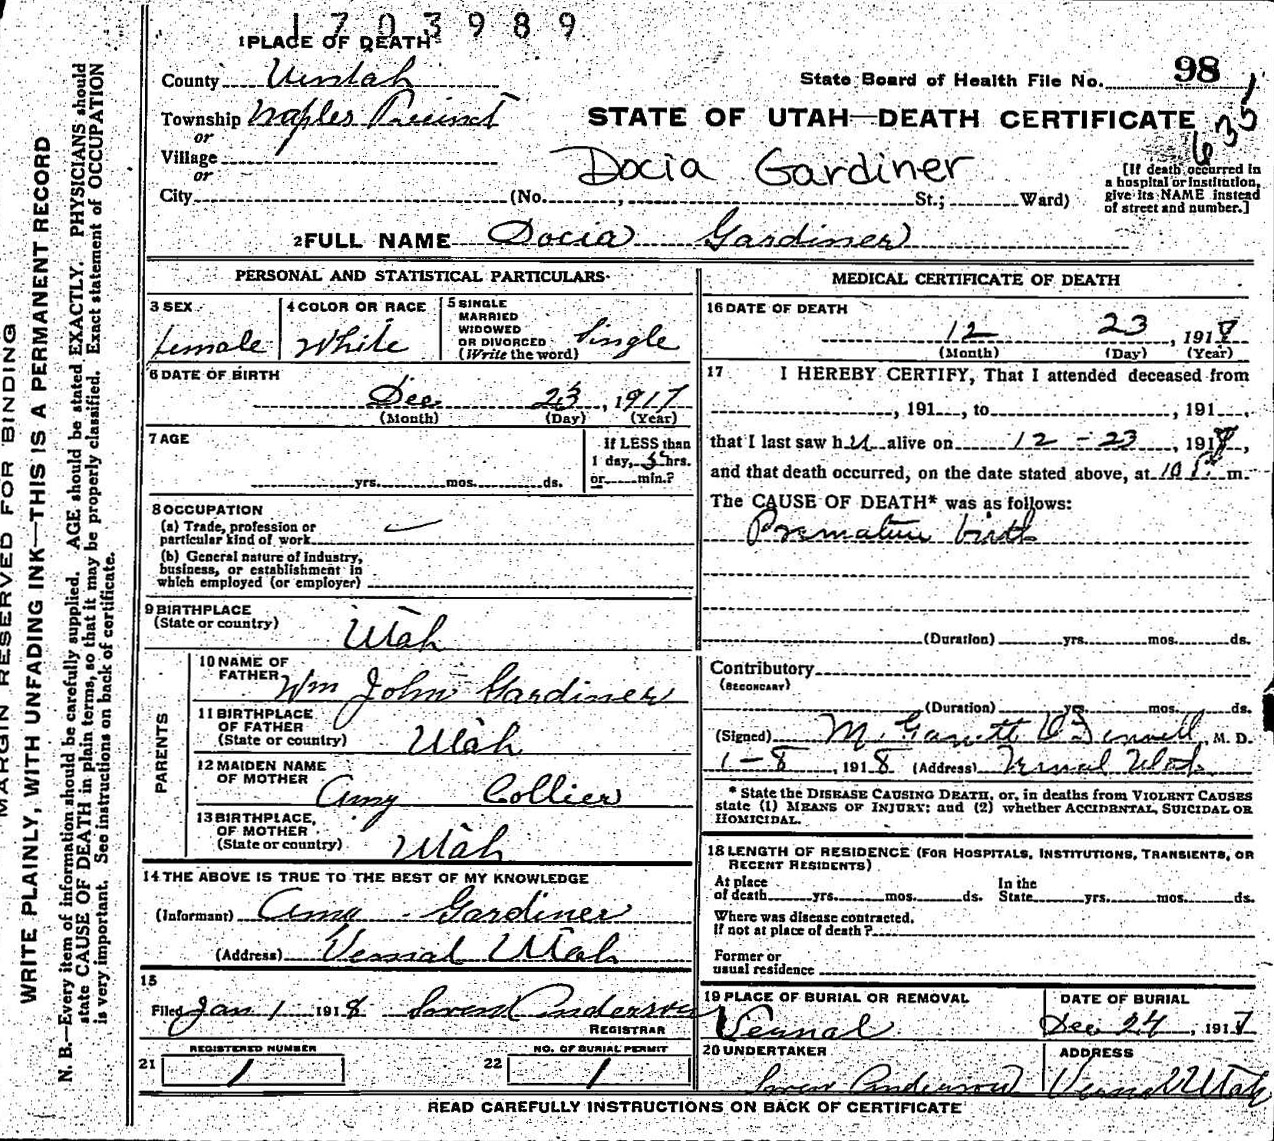 1703989
1 PLACE OF DEATH
County Uintah
State Board of Health File No. 98
Township Naples Precinct
STATE OF UTAH—DEATH CERTIFICATE
635
or
Village
Docia Gardiner
or
City (No. , St.; Ward)
[If death occurred in a hospital or institution, give its NAME instead of street and number.]
2 FULL NAME Docia Gardiner
PERSONAL AND STATISTICAL PARTICULARS
3 SEX
female
4 COLOR OR RACE
White
5 SINGLE
MARRIED
WIDOWED
OR DIVORCED
(Write the word) Single
6 DATE OF BIRTH
Dec 23, 1917
(Month) (Day) (Year)
7 AGE
yrs. mos. ds.
If LESS than
1 day, hrs.
or min.?
8 OCCUPATION
(a) Trade, profession or
particular kind of work
(b) General nature of industry,
business, or establishment in
which employed (or employer)
9 BIRTHPLACE
(State or country)
Utah
PARENTS
10 NAME OF
FATHER Wm John Gardiner
11 BIRTHPLACE
OF FATHER
(State or country) Utah
12 MAIDEN NAME
OF MOTHER
Amy Collier
13 BIRTHPLACE,
OF MOTHER
(State or country) Utah
14 THE ABOVE IS TRUE TO THE BEST OF MY KNOWLEDGE
(Informant) Amy Gardiner
(Address) Vernal Utah
15
Filed Jan 1 1918 Anderson
REGISTRAR
REGISTERED NUMBER
21 1
NO. OF BURIAL PERMIT
22 1
MEDICAL CERTIFICATE OF DEATH
16 DATE OF DEATH
12 23, 191
(Month) (Day) (Year)
17 I HEREBY CERTIFY, That I attended deceased from
, 191 , to , 191 ,
that I last saw h alive on 12 - 23, 191 ,
and that death occurred, on the date stated above, at 10 P. m.
The CAUSE OF DEATH* was as follows:
Premature birth
(Duration) yrs. mos. ds.
Contributory
(SECONDARY)
(Duration) yrs. mos. ds.
(Signed) M. Garnett , M. D.
1-8, 1918 (Address) Vernal Utah
* State the DISEASE CAUSING DEATH, or, in deaths from VIOLENT CAUSES
state (1) MEANS OF INJURY; and (2) whether ACCIDENTAL, SUICIDAL OR
HOMICIDAL.
18 LENGTH OF RESIDENCE (FOR HOSPITALS, INSTITUTIONS, TRANSIENTS, OR
RECENT RESIDENTS)
At place
of death yrs. mos. ds.
In the
State yrs. mos. ds.
Where was disease contracted,
if not at place of death?
Former or
usual residence
19 PLACE OF BURIAL OR REMOVAL
Vernal
DATE OF BURIAL
Dec 24, 1917
20 UNDERTAKER
Anderson
ADDRESS
Vernal Utah
READ CAREFULLY INSTRUCTIONS ON BACK OF CERTIFICATE
MARGIN RESERVED FOR BINDING
WRITE PLAINLY, WITH UNFADING INK—THIS IS A PERMANENT RECORD
N. B.—Every item of information should be carefully supplied. AGE should be stated EXACTLY. PHYSICIANS should
state CAUSE OF DEATH in plain terms, so that it may be properly classified. Exact statement of OCCUPATION
is very important. See instructions on back of certificate.